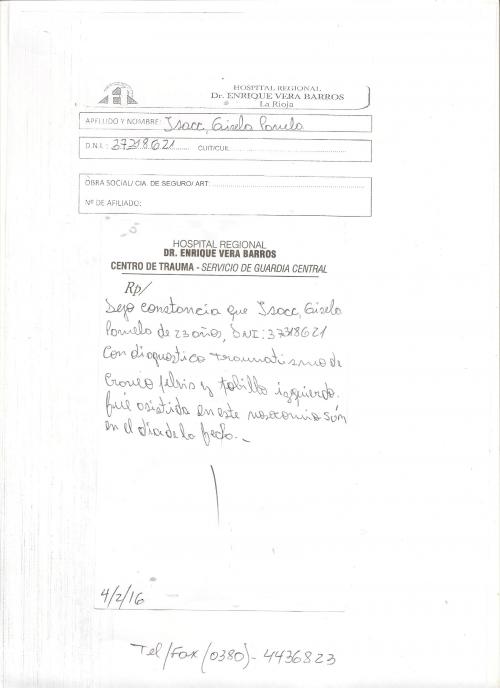 HOSPITAL REGIONAL
Dr. ENRIQUE VERA BARROS
La Rioja
APELLIDO Y NOMBRE: Isacc, Gisela Pamela
D.N.I.: 37318621 CUIT/CUIL
OBRA SOCIAL/ CIA. DE SEGURO/ ART:
Nº DE AFILIADO:
HOSPITAL REGIONAL
DR. ENRIQUE VERA BARROS
CENTRO DE TRAUMA - SERVICIO DE GUARDIA CENTRAL
Rp/
Dejo constancia que Isacc, Gisela
Pamela de 23 años, DNI: 37318621
Con diagnostico traumatismo de
Craneo pelvis y tobillo izquierdo.
fué asistida en este nosocomio
en el día de la fecha._
4/2/16
Tel/Fax (0380)- 4436823